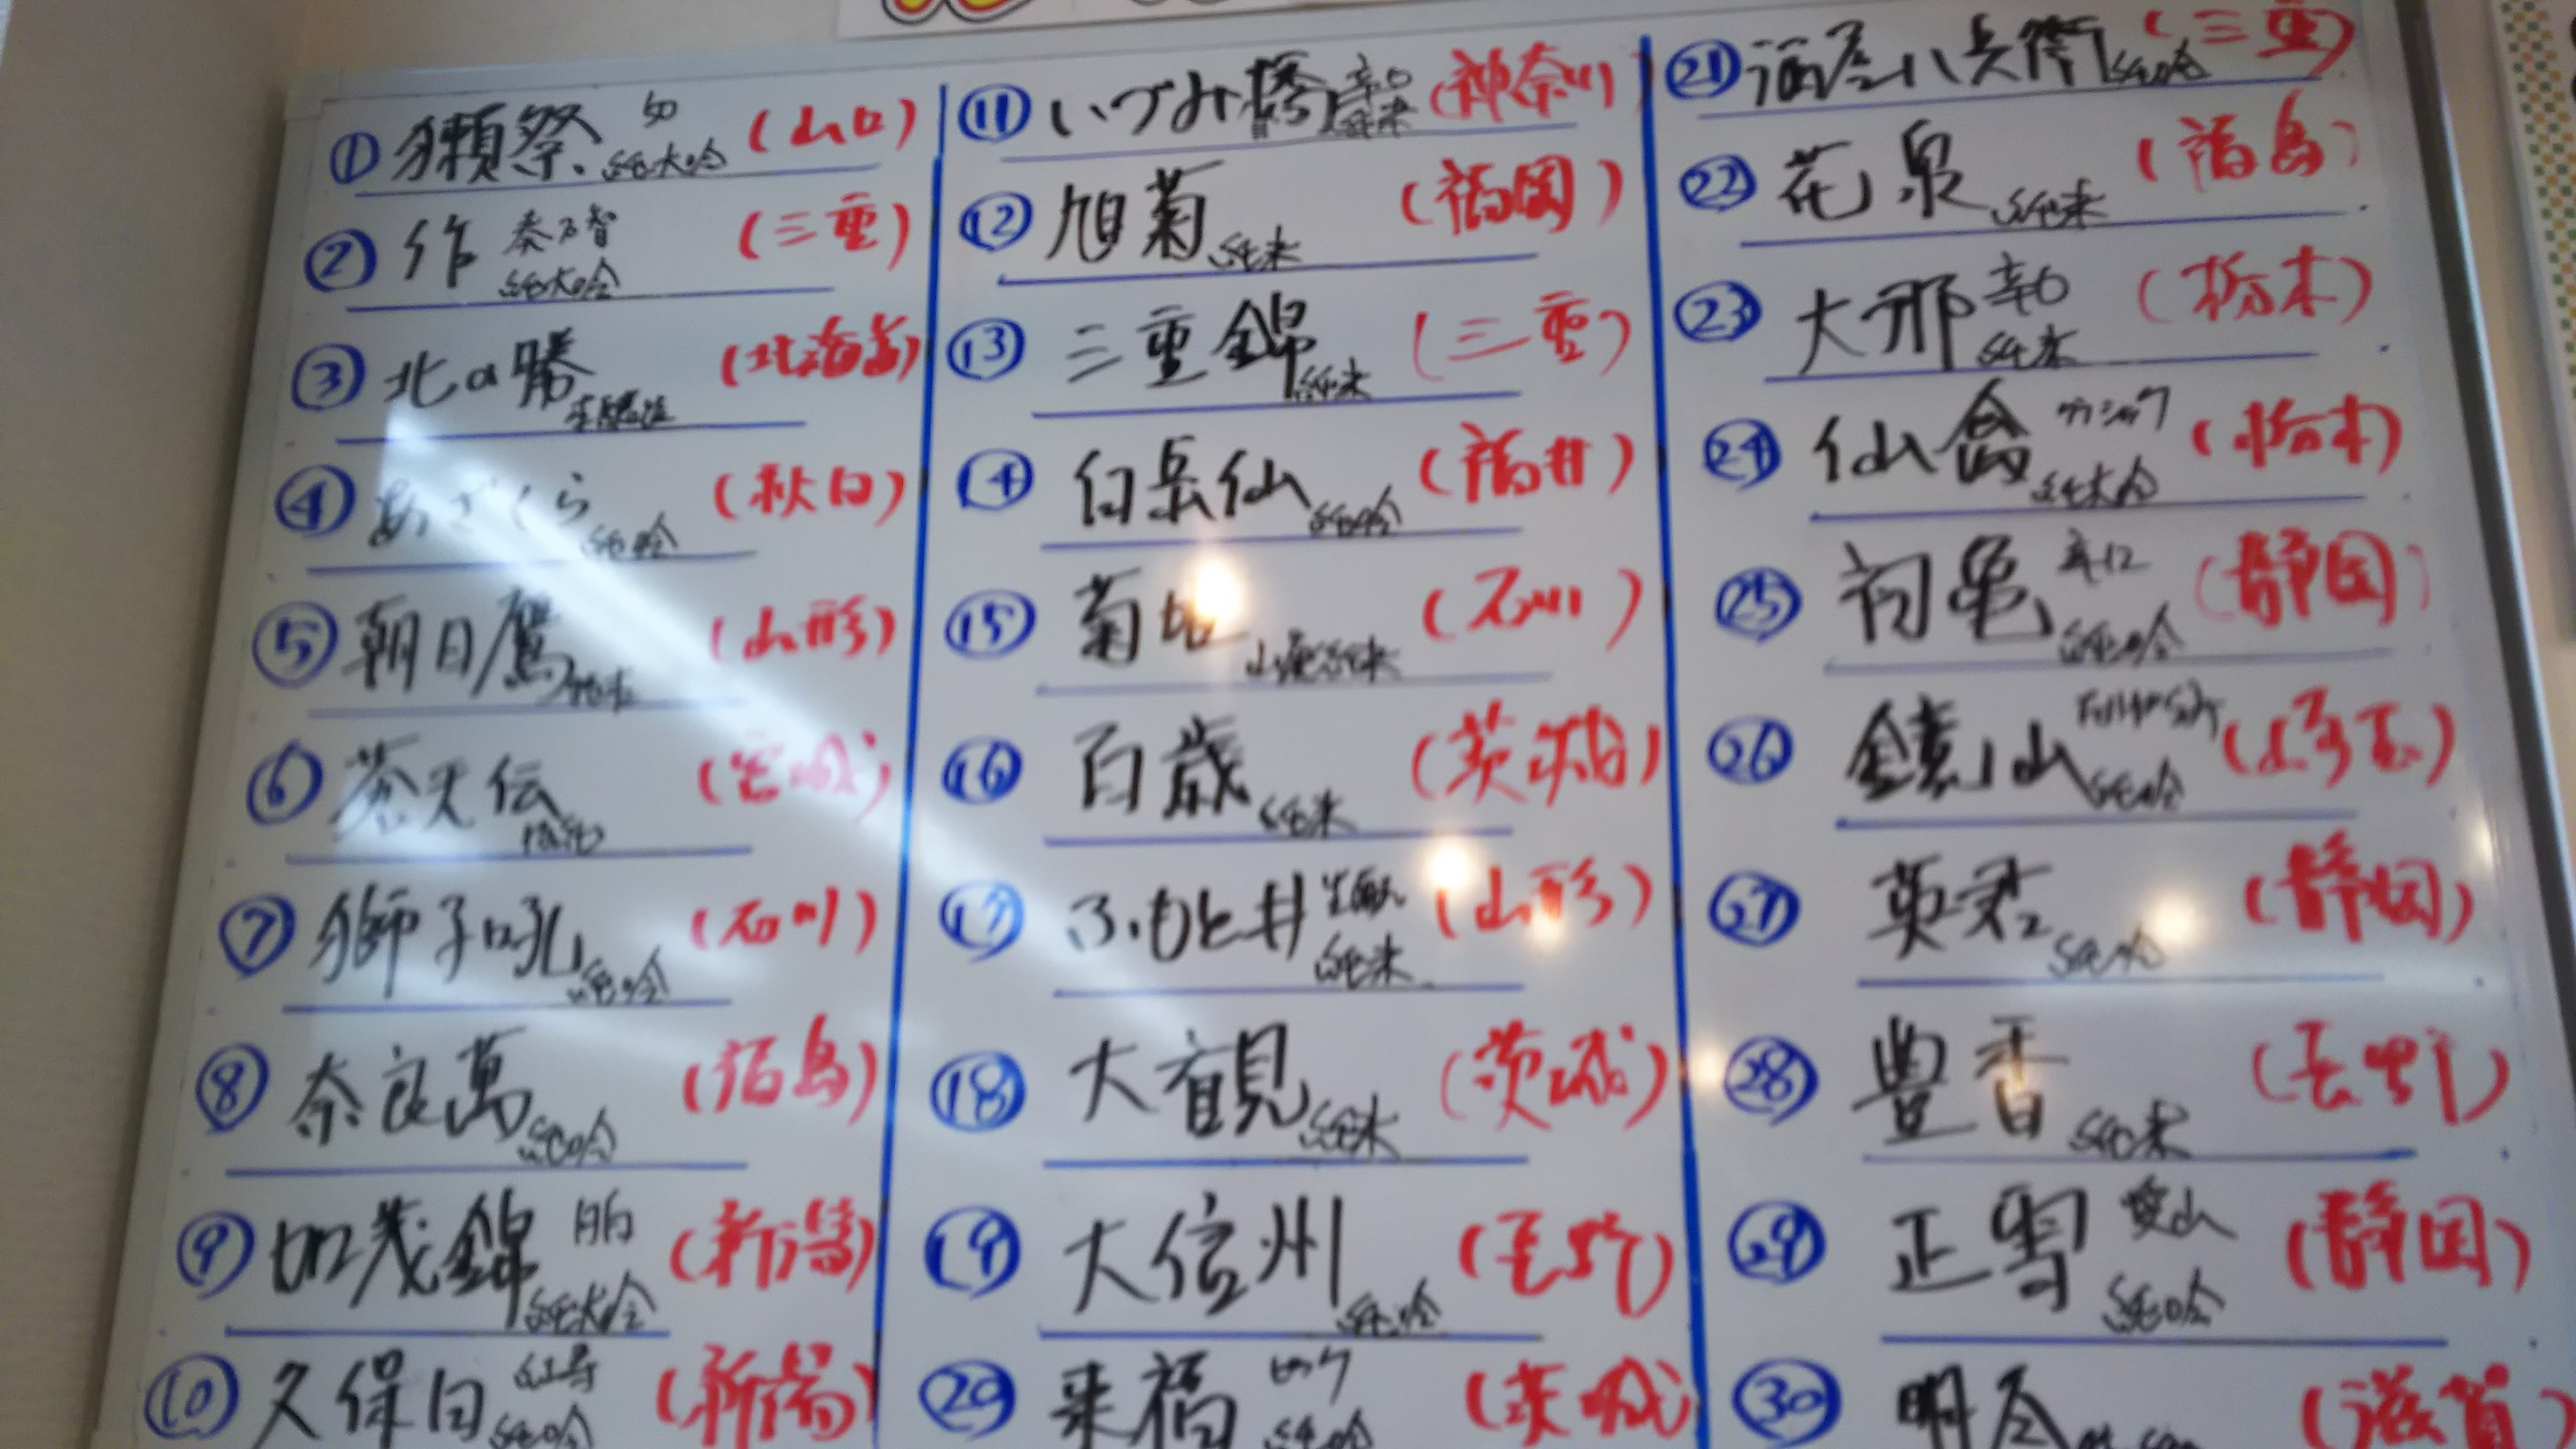 ① 獺祭 50 純大吟 (山口)
② 作 奏乃智 純大吟 (三重)
③ 北の勝 本醸造 (北海道)
④ あざくら 純吟 (秋田)
⑤ 朝日鷹 (山形)
⑥ 蒼天伝 (宮城)
⑦ 獅子吼 純吟 (石川)
⑧ 奈良萬 純吟 (福島)
⑨ 加茂錦 純大吟 (新潟)
⑩ 久保田 紅寿 純吟 (新潟)
⑪ いづみ橋 辛口 純米 (神奈川)
⑫ 旭菊 純米 (福岡)
⑬ 三重錦 純米 (三重)
⑭ 白岳仙 純吟 (福井)
⑮ 菊姫 山廃純米 (石川)
⑯ 百歳 純米 (茨城)
⑰ ふもと井 生酛 純米 (山形)
⑱ 大観 純米 (茨城)
⑲ 大信州 純吟 (長野)
⑳ 来福 純吟 (茨城)
㉑ 酒屋八兵衛 純吟 (三重)
㉒ 花泉 純米 (福島)
㉓ 大那 辛口 純米 (栃木)
㉔ 仙禽 クラシック 純大吟 (栃木)
㉕ 初亀 辛口 純吟 (静岡)
㉖ 鏡山 純吟 (埼玉)
㉗ 英君 純吟 (静岡)
㉘ 豊香 純米 (長野)
㉙ 正雪 愛山 純吟 (静岡)
㉚ (滋賀)